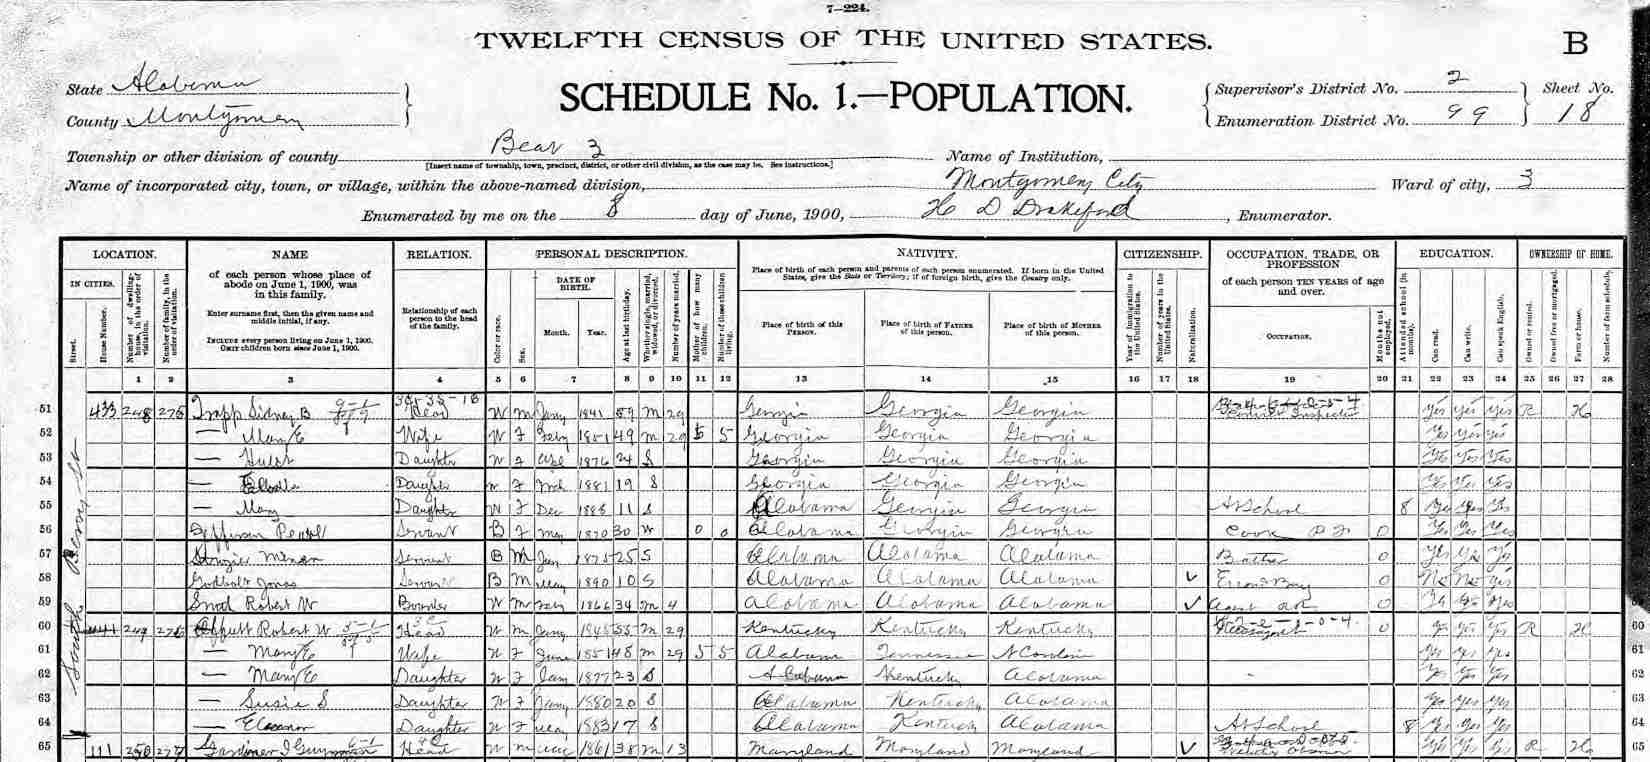 7—224.
TWELFTH CENSUS OF THE UNITED STATES.
B
State Alabama
County Montgomery
SCHEDULE No. 1.—POPULATION.
Supervisor's District No. 2
Enumeration District No. 99
Sheet No.
18
Township or other division of county Bear 3
[Insert name of township, town, precinct, district, or other civil division, as the case may be. See instructions.]
Name of Institution,
Name of incorporated city, town, or village, within the above-named division, Montgomery City
Ward of city, 3
Enumerated by me on the 8 day of June, 1900, H D Drakeford, Enumerator.
LOCATION.
IN CITIES.
Street.
House Number.
Number of dwelling-house, in the order of visitation.
Number of family, in the order of visitation.
NAME
of each person whose place of abode on June 1, 1900, was in this family.
Enter surname first, then the given name and middle initial, if any.
INCLUDE every person living on June 1, 1900.
OMIT children born since June 1, 1900.
RELATION.
Relationship of each person to the head of the family.
PERSONAL DESCRIPTION.
Color or race.
Sex.
DATE OF BIRTH.
Month.
Year.
Age at last birthday.
Whether single, married, widowed, or divorced.
Number of years married.
Mother of how many children.
Number of these children living.
NATIVITY.
Place of birth of each person and parents of each person enumerated. If born in the United States, give the State or Territory; if of foreign birth, give the Country only.
Place of birth of this PERSON.
Place of birth of FATHER of this person.
Place of birth of MOTHER of this person.
CITIZENSHIP.
Year of immigration to the United States.
Number of years in the United States.
Naturalization.
OCCUPATION, TRADE, OR PROFESSION
of each person TEN YEARS of age and over.
OCCUPATION.
Months not employed.
EDUCATION.
Attended school (in months).
Can read.
Can write.
Can speak English.
OWNERSHIP OF HOME.
Owned or rented.
Owned free or mortgaged.
Farm or house.
Number of farm schedule.
1 2 3 4 5 6 7 8 9 10 11 12 13 14 15 16 17 18 19 20 21 22 23 24 25 26 27 28
South Perry St
51 433 248 275 Trapp Sidney B Head W M Jany 1841 59 M 29 Georgia Georgia Georgia Yes Yes Yes R H
52 — Mary E Wife W F Feby 1851 49 M 29 5 5 Georgia Georgia Georgia Yes Yes Yes
53 — Daughter W F 1876 24 S Georgia Georgia Georgia Yes Yes Yes
54 — Daughter W F Mch 1881 19 S Georgia Georgia Georgia Yes Yes Yes
55 — Mary Daughter W F Dec 1888 11 S Alabama Georgia Georgia At School 8 Yes Yes Yes
56 Jefferson Pearl Servant B F May 1870 30 W 0 0 Alabama Georgia Georgia Cook 0 Yes Yes Yes
57 Servant B M Jan 1875 25 S Alabama Alabama Alabama Butler 0 Yes Yes Yes
58 Godbolt Jonas Servant B M May 1890 10 S Alabama Alabama Alabama Errand Boy 0 No No Yes
59 Robert W Boarder W M Feby 1866 34 M 4 Alabama Alabama Alabama Agent RR 0 Yes Yes Yes
60 441 249 276 Offutt Robert W Head W M Jany 1845 55 M 29 Kentucky Kentucky Kentucky 0 Yes Yes Yes R H 60
61 — Mary E Wife W F June 1851 48 M 29 5 5 Alabama Tennessee N Carolina Yes Yes Yes 61
62 — Mary E Daughter W F Jany 1877 23 S Alabama Kentucky Alabama Yes Yes Yes 62
63 — Susie S Daughter W F Jany 1880 20 S Alabama Kentucky Alabama Yes Yes Yes 63
64 — Eleanor Daughter W F 1883 17 S Alabama Kentucky Alabama At School 8 Yes Yes Yes 64
65 111 250 277 Gardiner J Head W M 1861 38 M 13 Maryland Maryland Maryland Yes Yes Yes R H 65